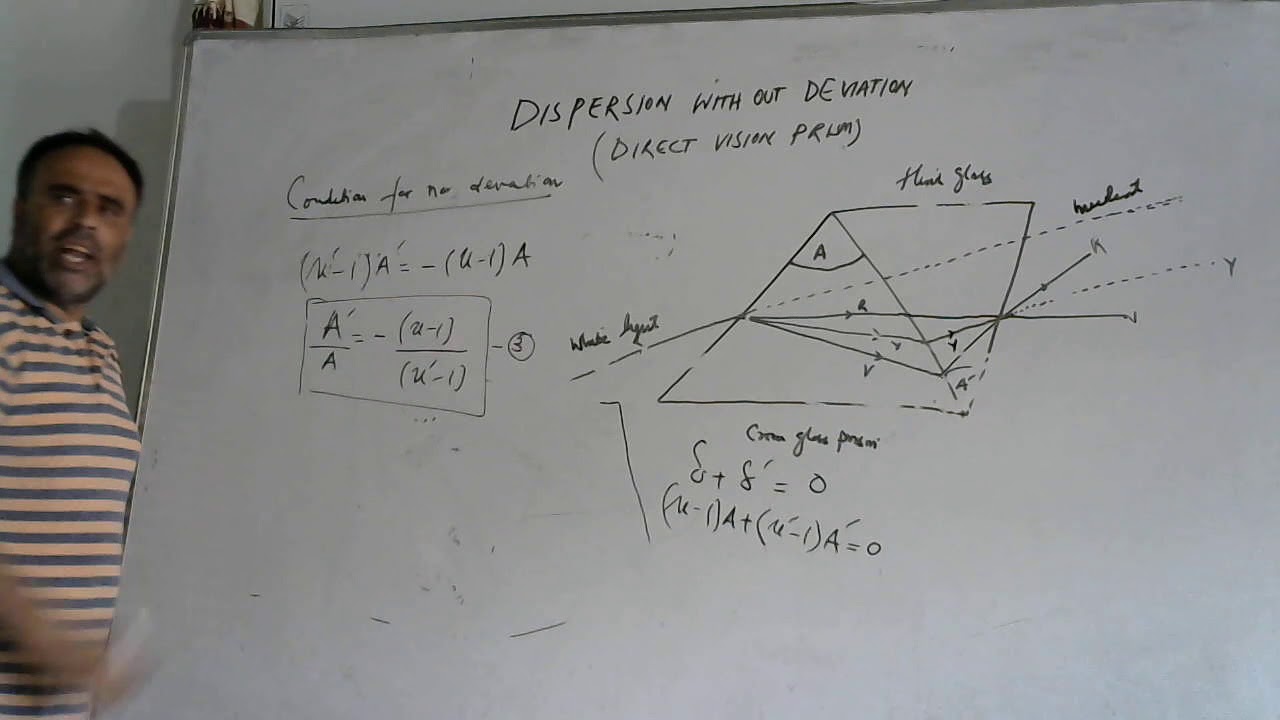 DISPERSION WITH OUT DEVIATION
(DIRECT VISION PRISM)
Condition for no deviation
(u′-1)A′ = -(u-1)A
A′/A = -(u-1)/(u′-1) - ③
flint glass
Incident
A
R
R
Y
White light
Y
Y
V
V
A′
Crown glass prism
δ + δ′ = 0
(u-1)A+(u′-1)A′=0